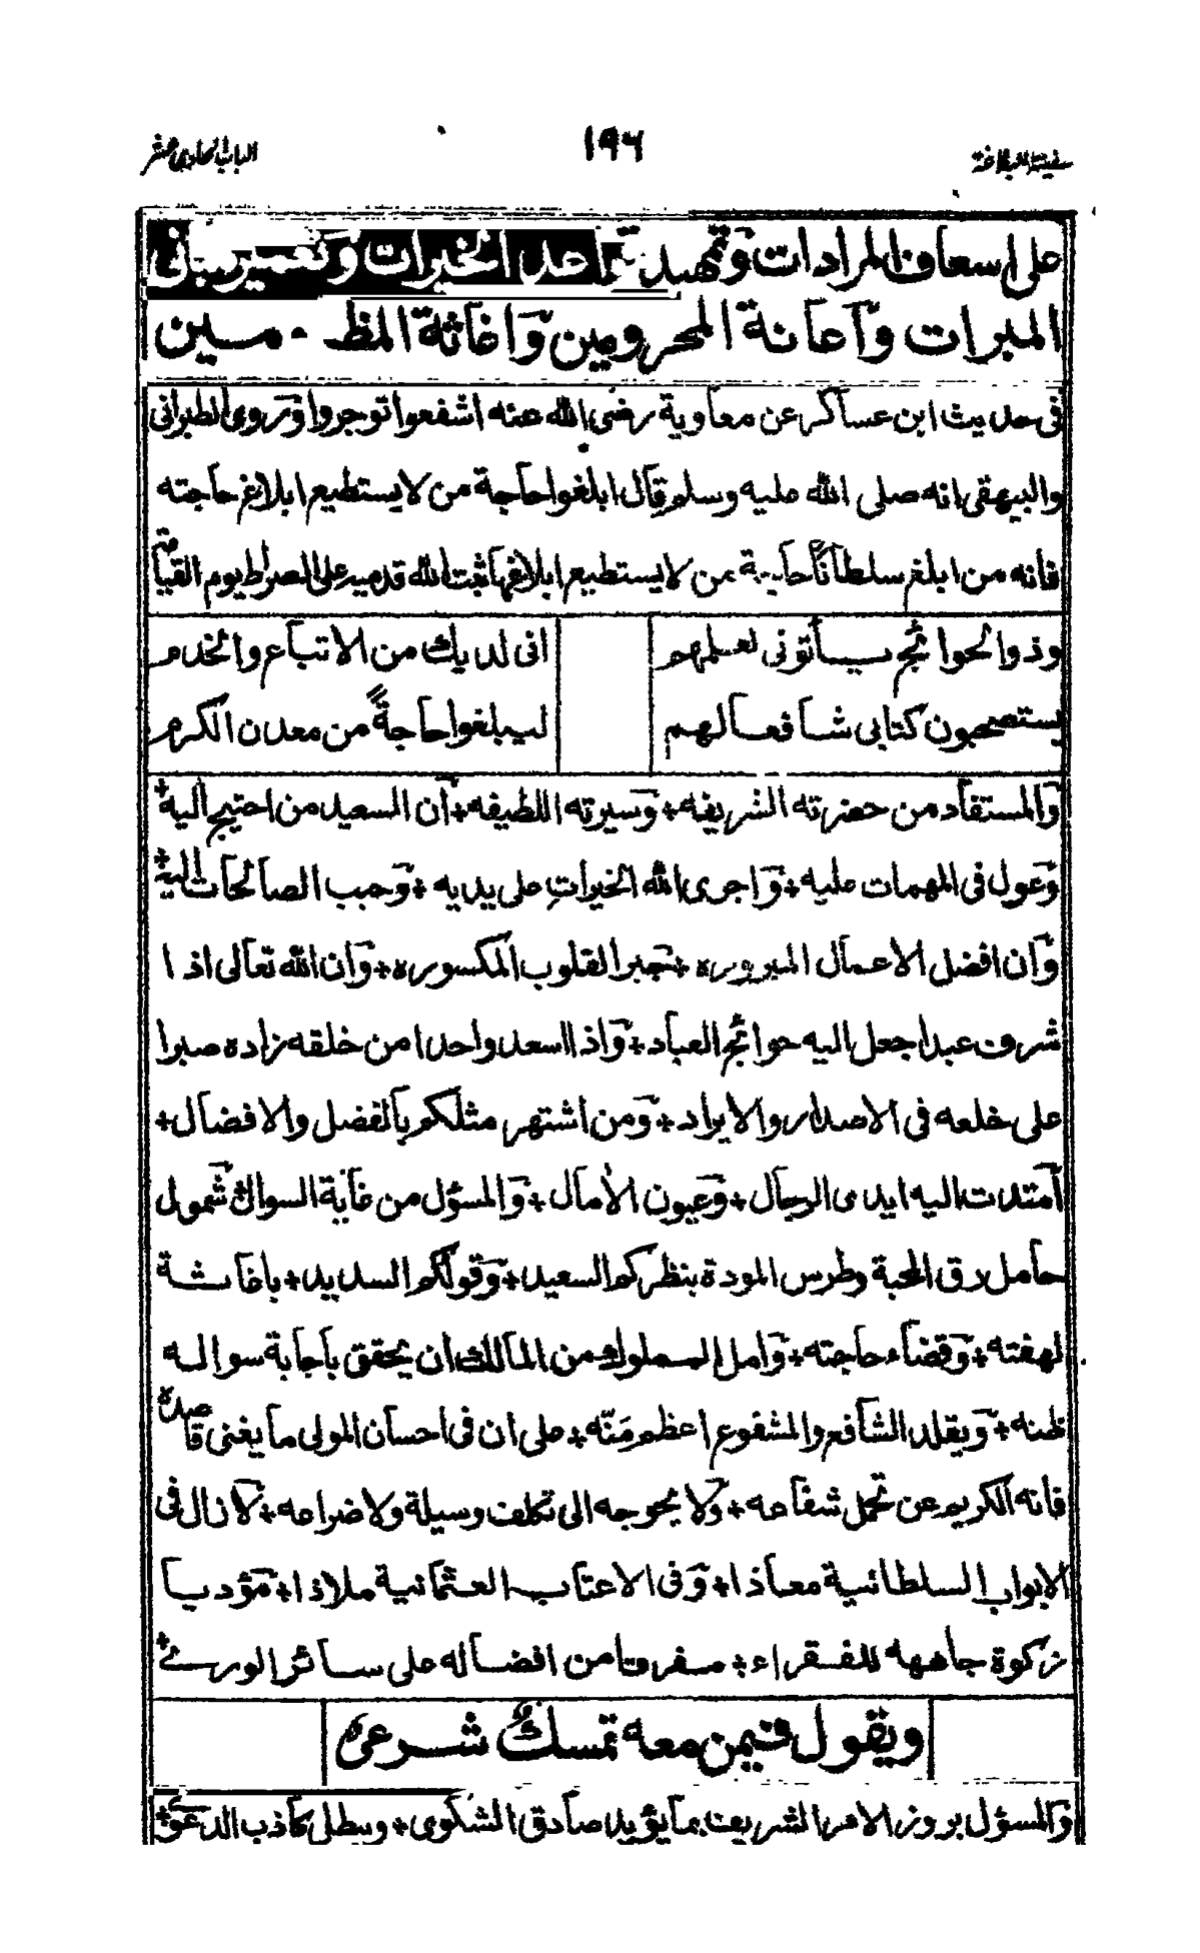 سفينة البلاغة
١٩٦
الباب الحادى عشر
على اسعاف المرادات وتمهيد قواعد الخيرات وتعمير مبانى
المبرات وآعانة المحرومين وآغاثة المظ سين
فى حديث ابن عساكر عن معاوية رضى الله عنه اشفعوا توجروا وروى الطبرانى
والبيهقى انه صلى الله عليه وسلم قال ابلغوا حاجة من لا يستطيع ابلاغ حاجته
فانه من ابلغ سلطانًا حاجة من لا يستطيع ابلاغها ثبت الله قدميه على الصراط يوم القيامة
وذوا لحوائج سيأتونى لعلمهم
انى لديك من الاتباع والخدم
يستصحبون كتابى شافعا لهم
ليبلغوا حاجةً من معدن الكرم
والمستفاد من حضرته الشريفه + وسيرته اللطيفه + ان السعيد من احتيج اليه +
وعول فى المهمات عليه + واجرى الله الخيرات على يديه + وحبب الصالحات اليه +
وان افضل الاعمال المبروره + جبر القلوب المكسوره + وان الله تعالى اذا
شرف عبدا جعل اليه حوائج العباد + واذا اسعد واحدا من خلقه زاده صبرا
على خلعه فى الاصدار والايراد + ومن اشتهر مثلكم بالفضل والافضال +
امتدت اليه ايدى الرجال + وعيون الأمال + والمسؤل من غاية السوال شمول
حامل رق المحبة وطرس المودة بنظركم السعيد + وقولكم السديد + باغاثة
لهفته + وقضاء حاجته + وامل المملوك من المالك ان يحقق باجابة سواله
ظنه + ويقلد الشافع والمشفوع اعظم مَنّه + على ان فى احسان المولى ما يغنى قاصده
فانه الكريم عن تحمل شفاعه + ولا يحوجه الى تكلف وسيلة ولا ضراعه + لا زال فى
الابواب السلطانية معاذا + وفى الاعتاب العثمانية ملاذا + مؤديا
زكوة جاهه للفقراء + مفرقا من افضاله على سائر الورى +
ويقول فيمن معه تمسكٌ شرعى
والمسؤل بروز الامر الشريف بما يؤيد صادق الشكوى + ويبطل كاذب الدعوى +